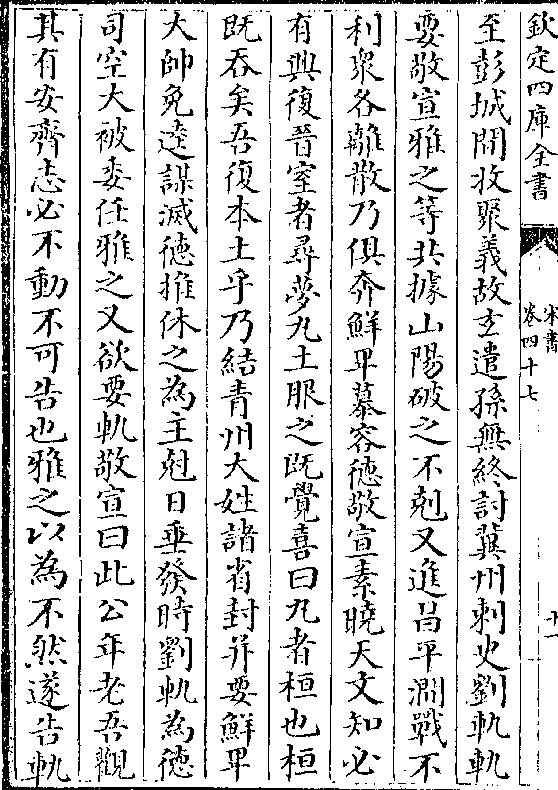 欽定四庫全書
宋書
卷四十七
十一
至彭城間收聚義故玄遣孫無終討冀州刺史劉軌軌
要敬宣雅之等共據山陽破之不剋又進昌平澗戰不
利衆各離散乃俱奔鮮卑慕容徳敬宣素曉天文知必
有興復晉室者尋夢丸土服之既覺喜曰丸者桓也桓
既吞矣吾復本土乎乃結青州大姓諸省封并要鮮卑
大帥免逵謀滅徳推休之為主剋日垂發時劉軌為徳
司空大被委任雅之又欲要軌敬宣曰此公年老吾觀
其有安齊志必不動不可告也雅之以為不然遂告軌